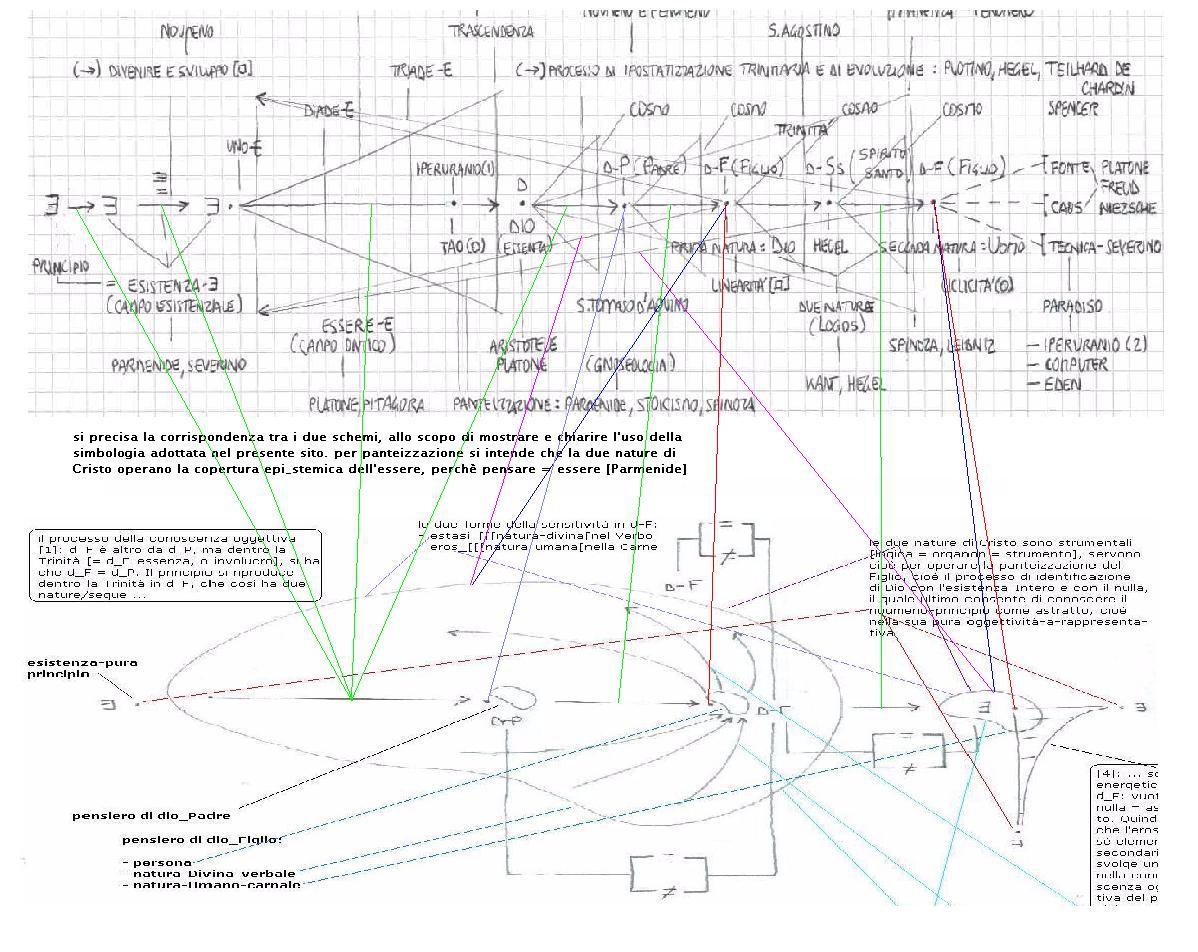 NOUMENO
TRASCENDENZA
NOUMENO E FENOMENO
S.AGOSTINO
FENOMENO
(→) DIVENIRE E SVILUPPO [O]
TRIADE-E
(→) PROCESSO DI IPOSTATIZZAZIONE TRINITARIA E DI EVOLUZIONE : PLOTINO, HEGEL, TEILHARD DE
CHARDIN
DIADE-E
COSMO
COSMO
COSMO
COSMO
SPENCER
TRINITA'
UNO-E
IPERURANIO(1)
D-P (PADRE)
D-F (FIGLIO)
D-SS (SPIRITO
SANTO)
D-F (FIGLIO)
FONTE, PLATONE
FREUD
D
∃ → ∃ → ∃
CAOS
NIEZSCHE
DIO
TAO(O)
(ESSENZA)
PRIMA NATURA : DIO
HEGEL
SECONDA NATURA : UOMO
TECNICA-SEVERINO
PRINCIPIO
= ESISTENZA-∃
(CAMPO ESISTENZIALE)
LINEARITA'
CICLICITA'(O)
S.TOMMASO D'AQUINO
DUE NATURE
(LOGOS)
PARADISO
ESSERE-E
(CAMPO ONTICO)
ARISTOTELE
PLATONE
(GNOSEOLOGIA)
SPINOZA, LEIBNIZ
- IPERURANIO (2)
- COMPUTER
- EDEN
PARMENIDE, SEVERINO
KANT, HEGEL
PLATONE, PITAGORA
PANTEIZZAZIONE : PARMENIDE, STOICISMO, SPINOZA
si precisa la corrispondenza tra i due schemi, allo scopo di mostrare e chiarire l'uso della
simbologia adottata nel presente sito. per panteizzazione si intende che la due nature di
Cristo operano la copertura epi_stemica dell'essere, perchè pensare = essere [Parmenide]
il processo della conoscenza oggettiva
[1]: d_F è altro da d_P, ma dentro la
Trinità [= d_ essenza, o involucro], si ha
che d_F = d_P. Il principio si riproduce
dentro la Trinità in d_F, che così ha due
nature/seque ...
le due forme della sensitività in d-F:
- estasi_[[[natura-divina[nel Verbo
- eros_[[[natura_umana[nella Carne
=
≠
D-F
le due nature di Cristo sono strumentali
[logica = organon = strumento], servono
cioè per operare la panteizzazione del
Figlio, cioè il processo di identificazione
di Dio con l'esistenza Intero e con il nulla,
il quale ultimo consente di conoscere il
noumeno-principio come astratto, cioè
nella sua pura oggettività-a-rappresenta-
tiva
esistenza-pura
principio
∃
D-P
D-F
∃
∃
=
≠
pensiero di dio_Padre
pensiero di dio_Figlio:
- persona
- natura-Divina-verbale
- natura-Umano-carnale
=
≠
[4]: ... so
energetic
d_F: vuot
nulla = as
to. Quind
che l'eros
sé elemen
secondari
svolge un
nella con
scenza og
tiva del p